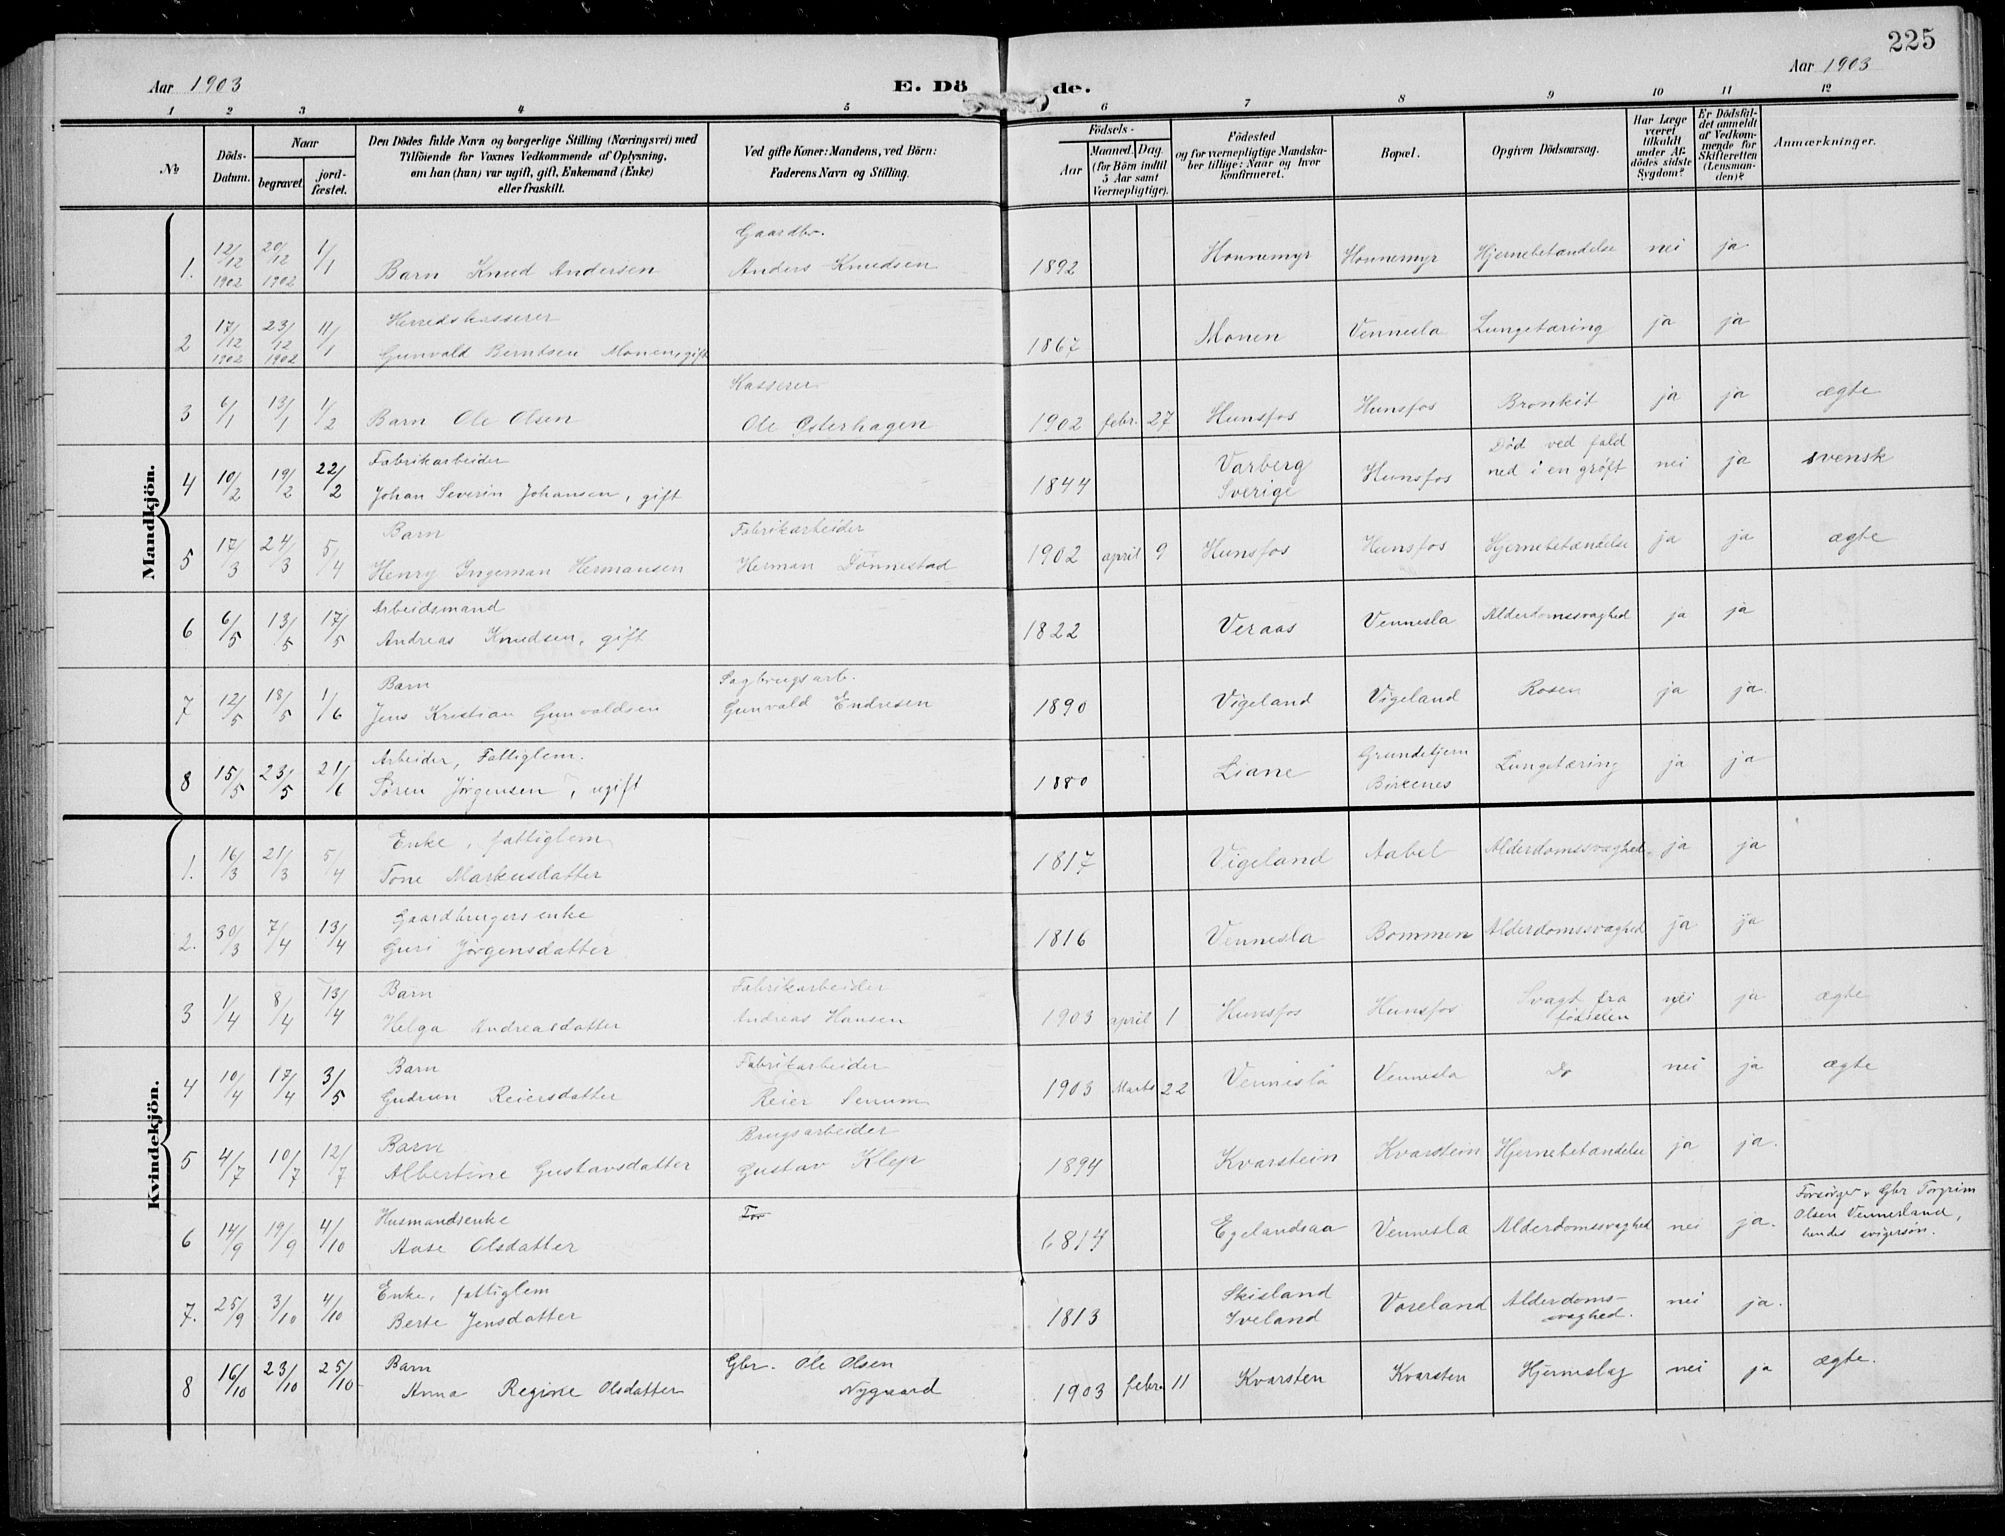 225
Aar 1903
E. Dö de.
Aar 1903
1 2 3 4 5 6 7 8 9 10 11 12
No
Döds-Datum.
Naar
begravet.
jord-fæstet.
Den Dödes fulde Navn og borgerlige Stilling (Næringsvei) med
Tilföiende for Voxnes Vedkommende af Oplysning,
om han (hun) var ugift, gift, Enkemand (Enke)
eller fraskilt.
Ved gifte Koner: Mandens, ved Börn:
Faderens Navn og Stilling.
Födsels-
Aar
Maaned. Dag.
(for Börn indtil
5 Aar samt
Værnepligtige).
Födested
og for værnepligtige Mandska-
ber tillige: Naar og hvor
konfirmeret.
Bopæl.
Opgiven Dödsaarsag.
Har Læge
været
tilkaldt
under Af-
dödes sidste
Sygdom?
Er Dödsfal-
det anmeldt
af Vedkom-
mende for
Skifteretten
(Lensman-
den)?
Anmærkninger.
Mandkjön.
1. 12/12 1902 20/12 1902 1/1 Barn Knud Andersen Gaardbr. Anders Knudsen 1892 Honnemyr Honnemyr Hjernebetændelse nei ja
2 17/12 1902 23/12 1902 11/1 Herredskasserer Gunvald Berntsen Monen, gift 1867 Monen Vennesla Lungetæring ja ja
3 6/1 13/1 1/2 Barn Ole Olsen Kasserer Ole Østerhagen 1902 febr. 27 Hunsfos Hunsfos Bronkit ja ja ægte
4 10/2 19/2 22/2 Fabrikarbeider Johan Severin Johansen, gift 1844 Varberg Sverige Hunsfos Død ved fald ned i en grøft nei ja svensk
5 17/3 24/3 5/4 Barn Henry Ingeman Hermansen Fabrikarbeider Herman Dønnestad 1902 april 9 Hunsfos Hunsfos Hjernebetændelse ja ja ægte
6 6/5 13/5 17/5 Arbeidsmand Andreas Knudsen, gift 1822 Veraas Vennesla Alderdomssvaghed ja ja
7 12/5 18/5 1/6 Barn Jens Kristian Gunvaldsen Sagbrugsarb. Gunvald Endresen 1890 Vigeland Vigeland Rosen ja ja.
8 15/5 23/5 21/6 Arbeider, Fattiglem. Søren Jørgensen, ugift 1880 Liane Grundetjern Birkenes Lungetæring ja ja
Kvindekjön.
1. 16/3 21/3 5/4 Enke, fattiglem Tone Markusdatter 1817 Vigeland Aabel Alderdomssvaghed. ja ja
2. 30/3 7/4 13/4 Gaardbrugersenke Guri Jørgensdatter 1816 Vennesla Bommen Alderdomssvaghed ja ja
3 1/4 8/4 13/4 Barn Helga Andreasdatter Fabrikarbeider Andreas Hansen 1903 april 1 Hunsfos Hunsfos Svagt fra fødselen nei ja ægte
4 10/4 17/4 3/5 Barn Gudrun Reiersdatter Fabrikarbeider Reier 1903 Marts 22 Vennesla Vennesla Do nei ja ægte
5 4/7 10/7 12/7 Barn Albertine Gustavsdatter Brugsarbeider Gustav Klep 1894 Kvarstein Kvarstein Hjernebetændelse ja ja.
6 14/9 19/9 4/10 Husmandsenke Aase Olsdatter Tor Egelandsaa Vennesla Alderdomssvaghed nei ja. Forsørger v Gbr Torgrim Olsen Vennesland, hendes svigersøn.
7. 25/9 3/10 4/10 Enke, fattiglem Berte Jensdatter 1813 Skisland Iveland Voreland Alderdoms-svaghed. nei ja.
8 16/10 23/10 25/10 Barn Anna Regine Olsdatter Gbr. Ole Olsen Nygaard 1903 febr. 11 Kvarsten Kvarsten Hjerneslag nei ja ægte.